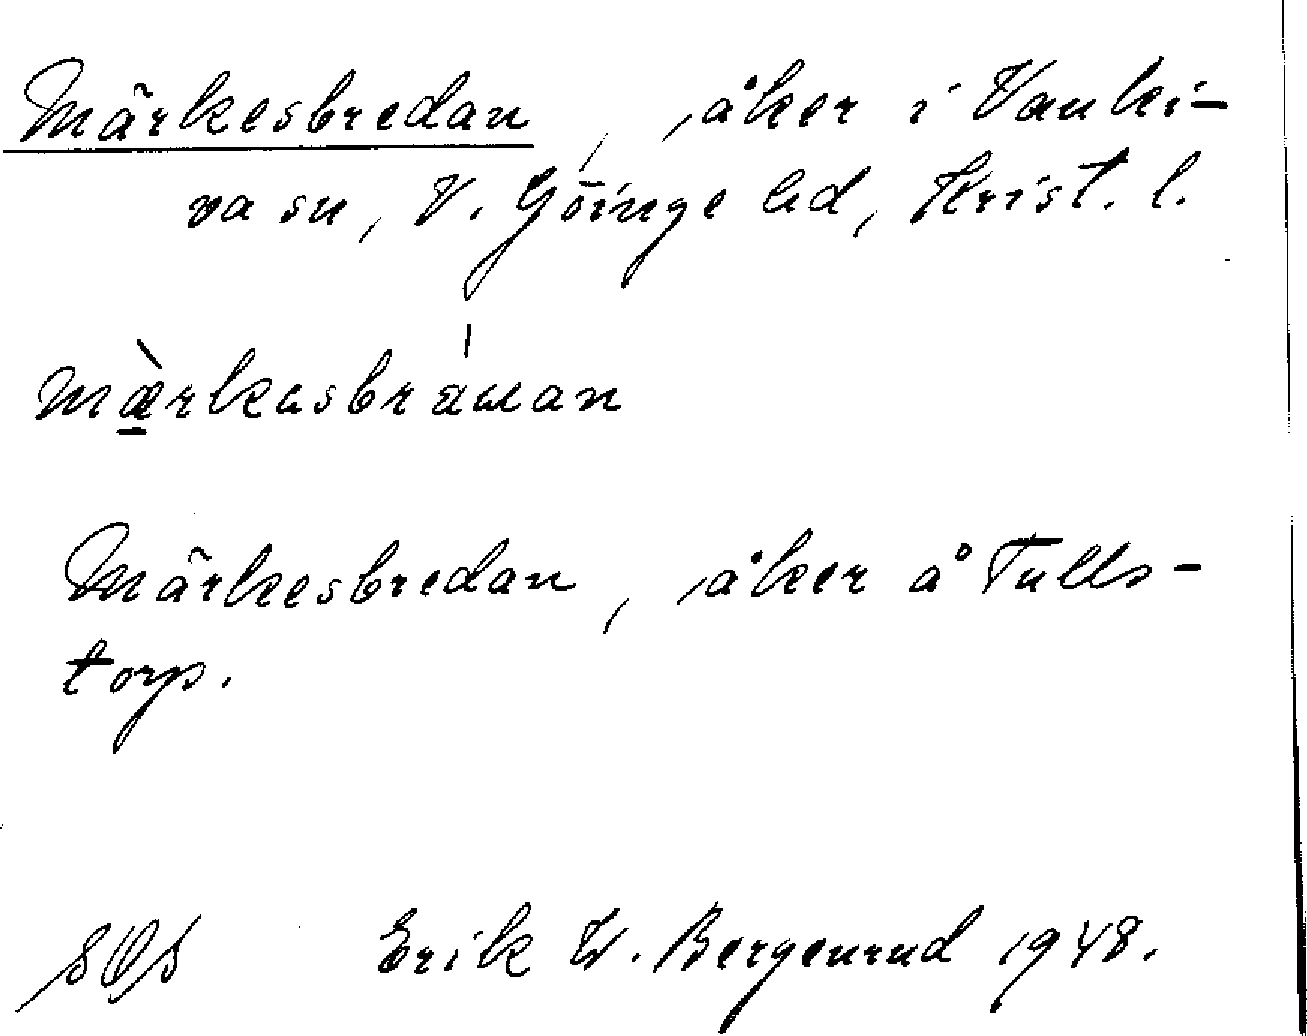 Märkesbredan, åker i Vanki-
va sn, V. Göinge hd, Krist. l.
mæ̀rkasbráuan
Märkesbredan, åker å Tulls-
torp.
Erik W. Bergenrud 1948.